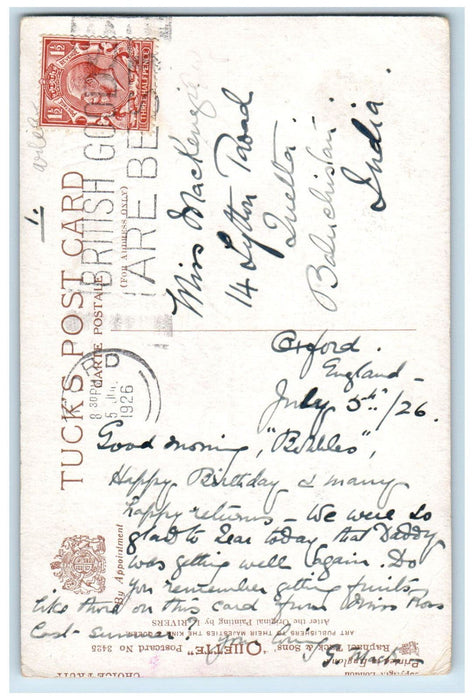 1½ 1½
THREE HALFPENCE
BRITISH GOODS
ARE BEST
8 30 PM
5 JUL
1926
TUCK'S POST CARD
CARTE POSTALE
(FOR ADDRESS ONLY)
1.
Miss MacKenzie
14 Lytton Road
Quetta
Baluchistan
India.
Oxford.
England –
July 5th /26.
Good morning, "Bubbles",
Happy Birthday & many
happy returns – We were so
glad to hear today that Daddy
was getting well again. Do
you remember getting fruits
like those on this card from Miss Ross
last summer?
By Appointment
Raphael Tuck & Sons' "OILETTE" Postcard No 3425
ART PUBLISHERS TO THEIR MAJESTIES THE KING & QUEEN
After the Original Painting by RIVERS
CHOICE FRUIT